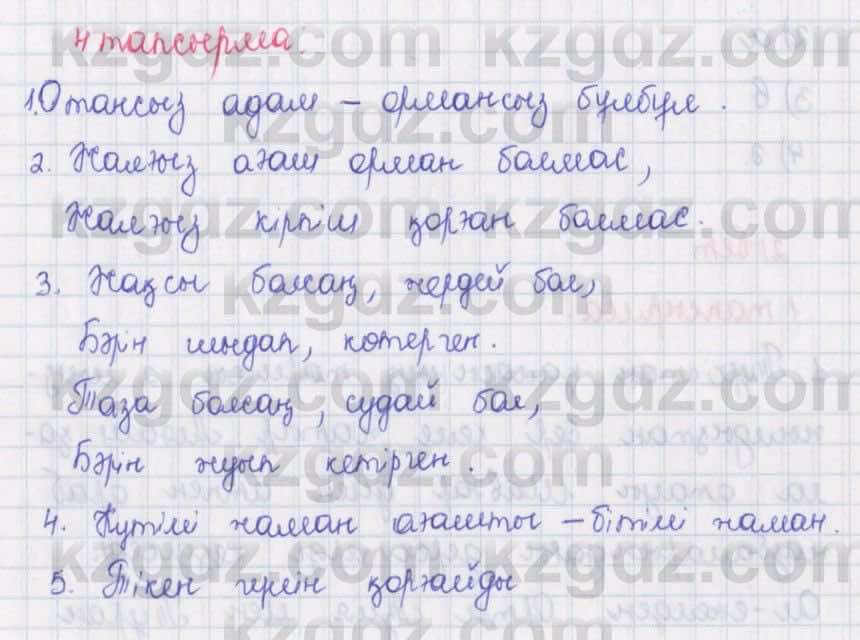 4 тапсырма.
1. Отансыз адам – ормансыз бұлбұл.
2. Жалғыз ағаш орман болмас,
Жалғыз кірпіш қорған болмас.
3. Жақсы болсаң, жердей бол,
Бәрін шыдап, көтерген.
Таза болсаң, судай бол,
Бәрін жуып кетірген.
4. Күтімі жаман ағаштың – бітімі жаман.
5. Тікен гүлін қорғайды